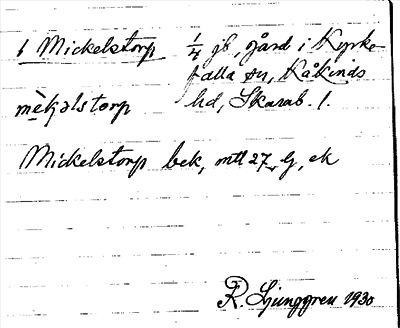 1 Mickelstorp 1/4 jb, gård i Kyrke-
falla sn, Kåkinds
mèkəlstorp hd, Skarab. l.
Mickelstorp bek, mtl 27, G, ek
R. Ljunggren 1930